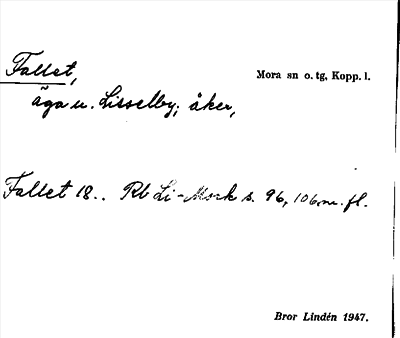 Fallet,
Mora sn o. tg, Kopp. l.
äga u. Lisselby; åker,
Fallet 18.. Rb Li-Mork s. 96, 106 m. fl.
Bror Lindén 1947.